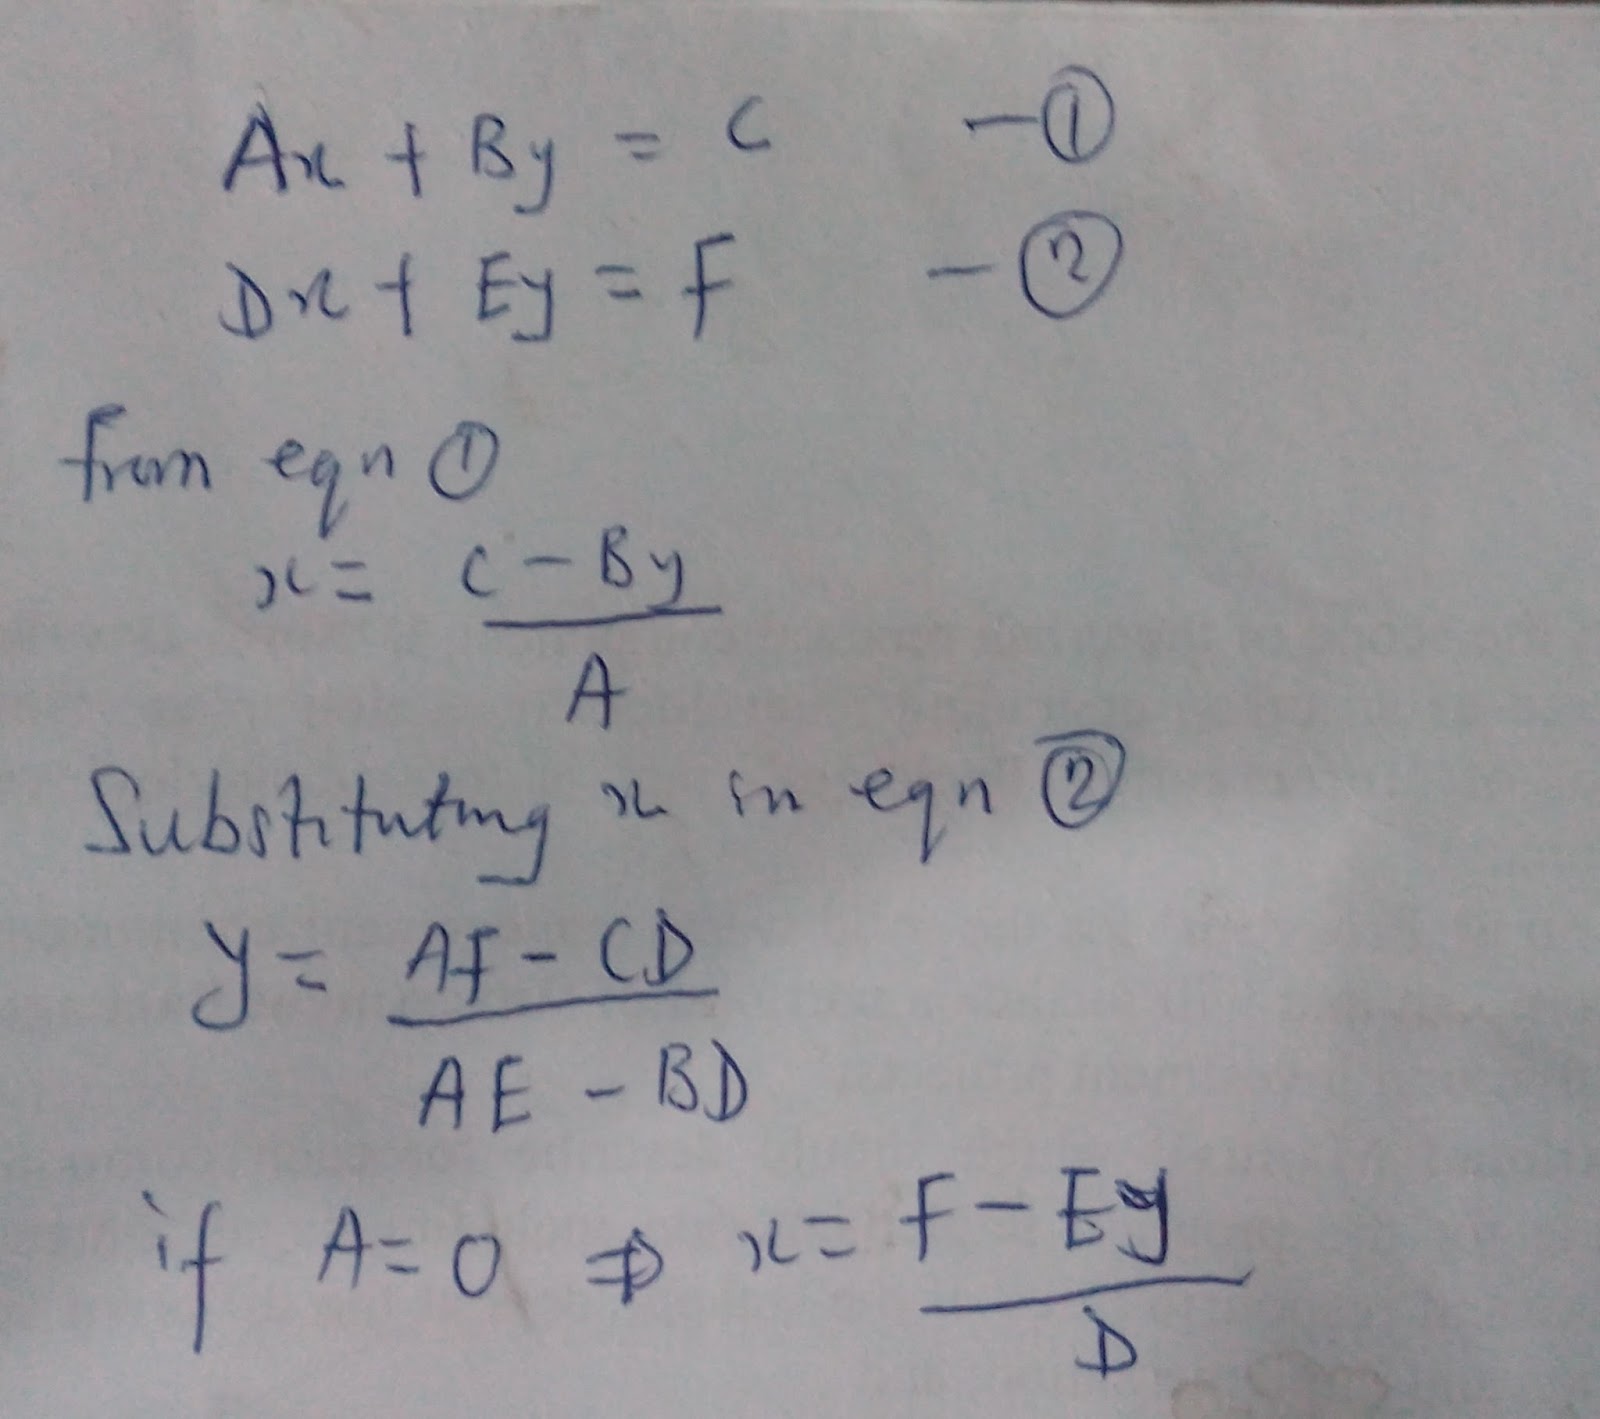 Ax + By = C — ①
Dx + Ey = F — ②
from eqn ①
x = C - By
A
Substituting x in eqn ②
y = AF - CD
AE - BD
if A = 0 ⇒ x = F - Ey
D